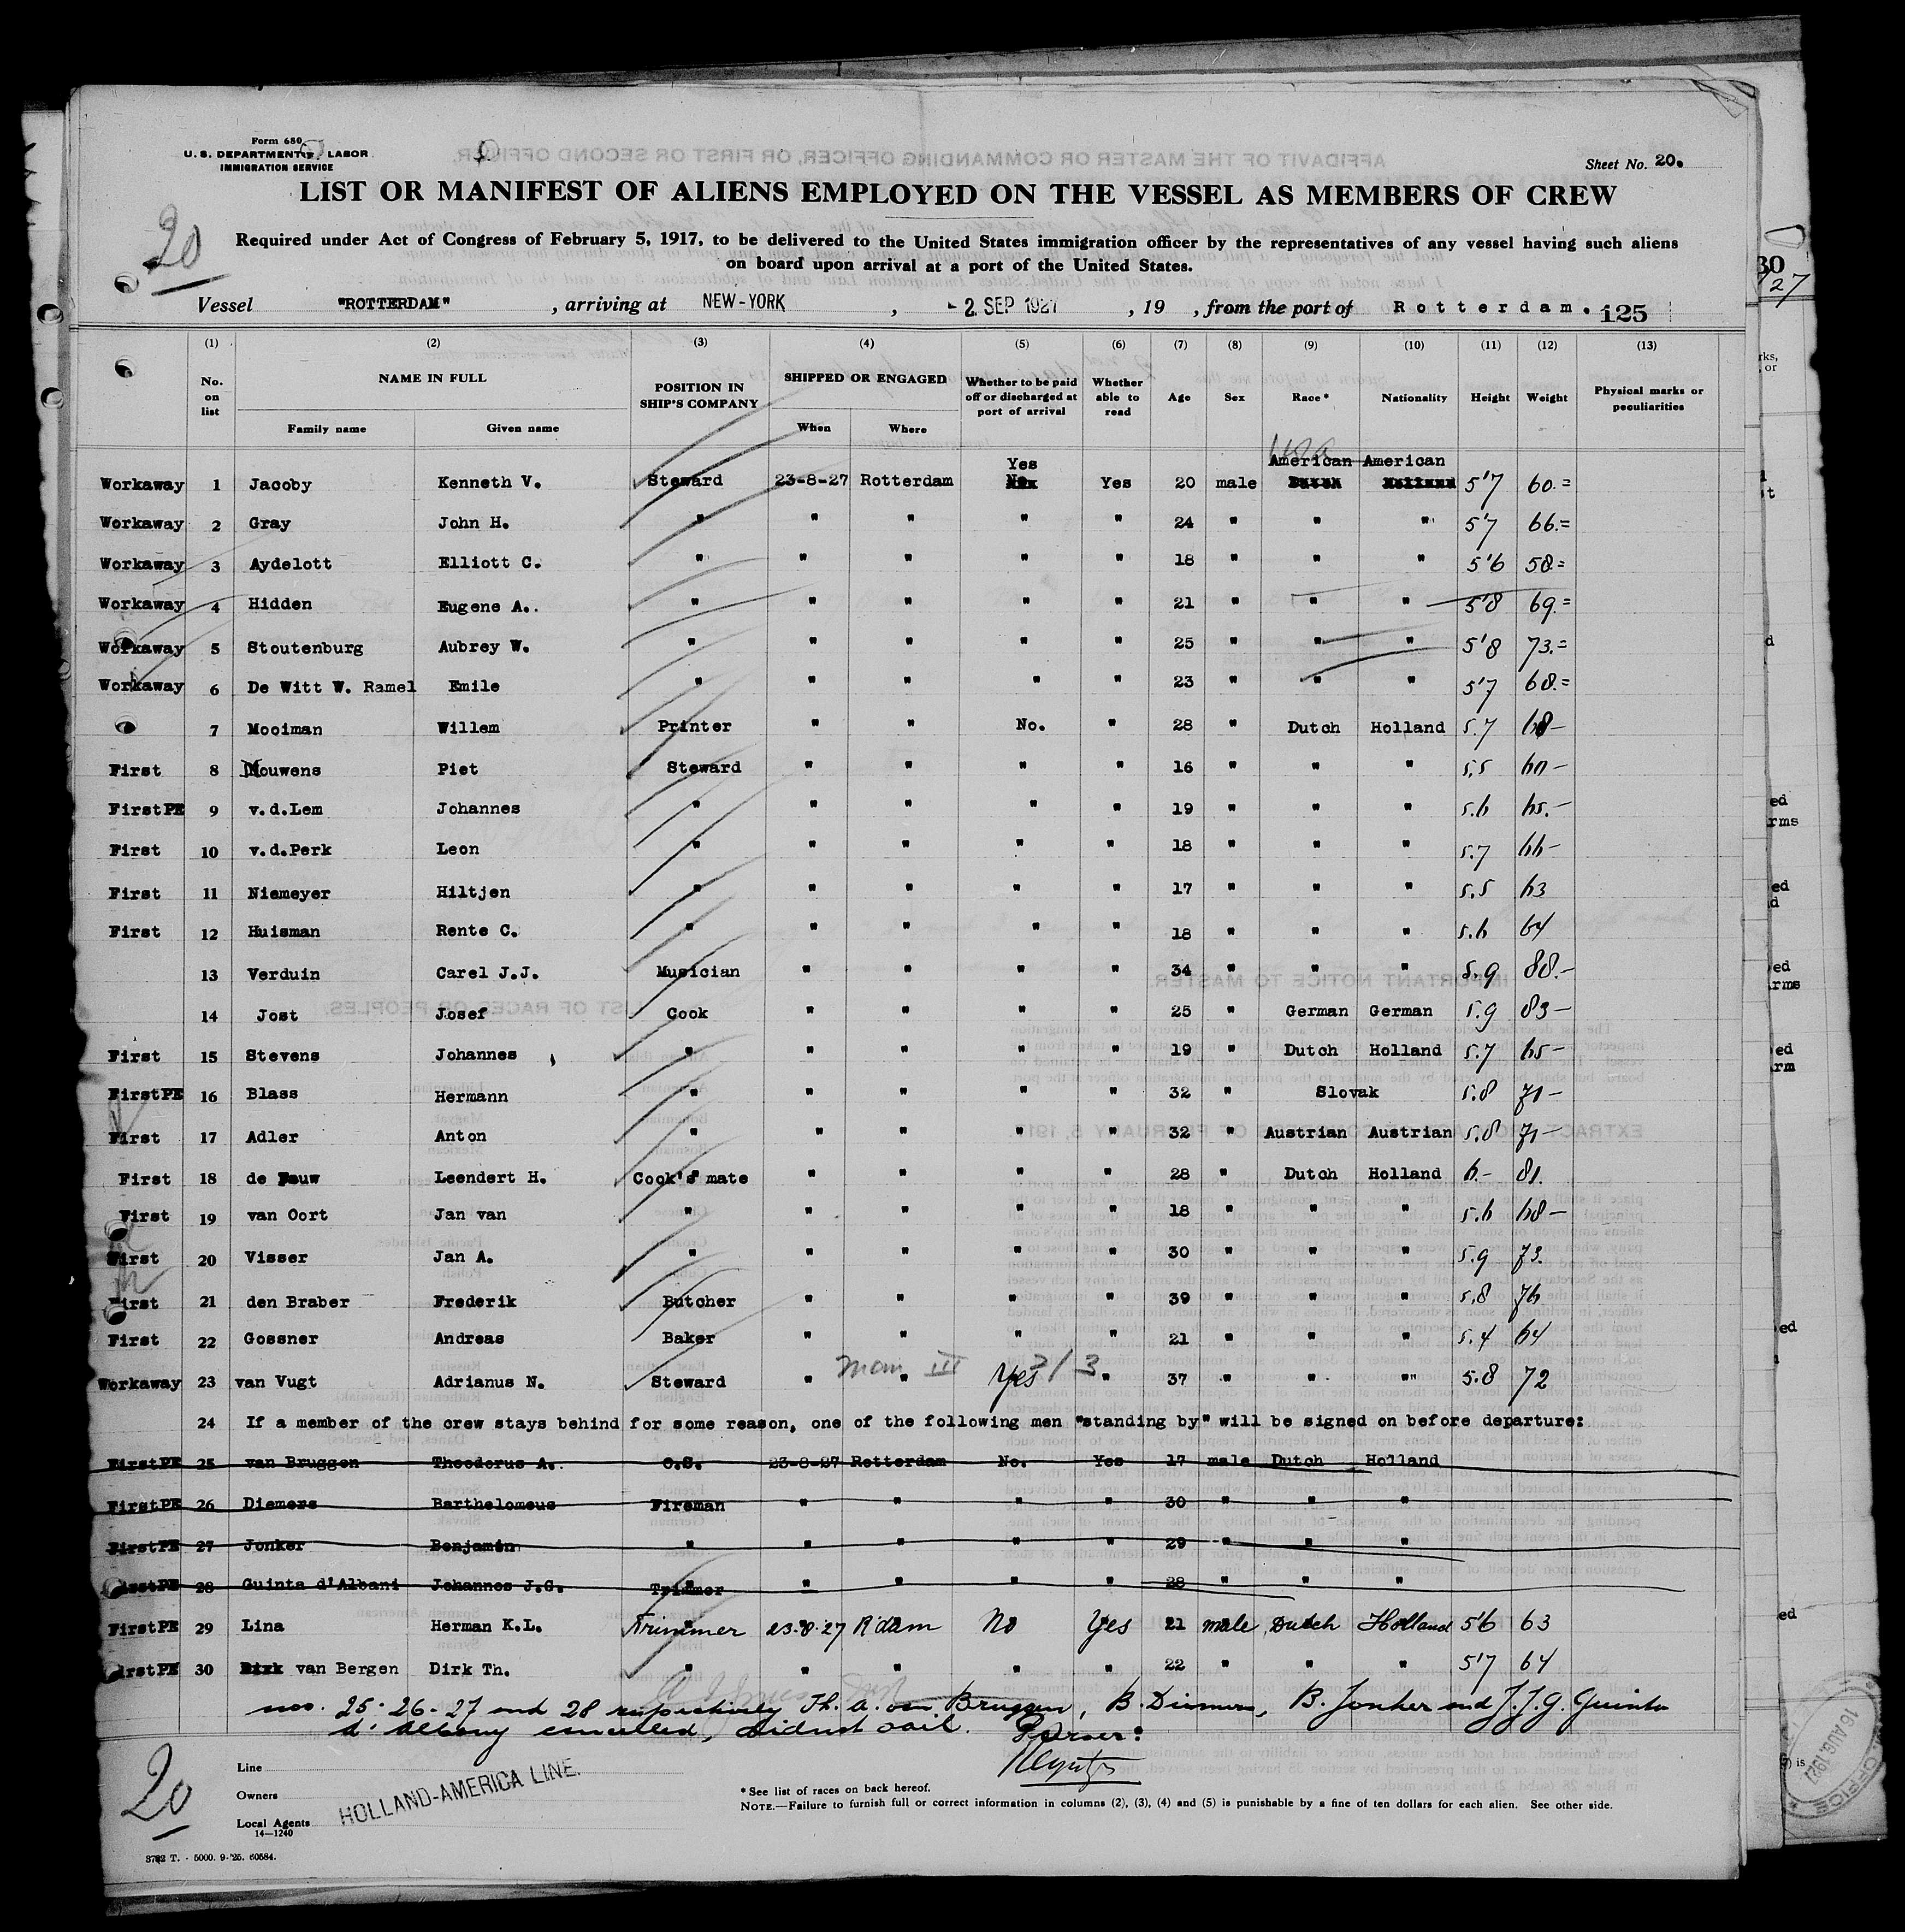 Form 680
U. S. DEPARTMENT OF LABOR
IMMIGRATION SERVICE
Sheet No. 20.
LIST OR MANIFEST OF ALIENS EMPLOYED ON THE VESSEL AS MEMBERS OF CREW
20
Required under Act of Congress of February 5, 1917, to be delivered to the United States immigration officer by the representatives of any vessel having such aliens
on board upon arrival at a port of the United States.
Vessel "ROTTERDAM" , arriving at NEW-YORK , - 2 SEP 1927 , 19 , from the port of Rotterdam. 125
(1) (2) (3) (4) (5) (6) (7) (8) (9) (10) (11) (12) (13)
No. on list NAME IN FULL Family name Given name POSITION IN SHIP'S COMPANY SHIPPED OR ENGAGED When Where Whether to be paid off or discharged at port of arrival Whether able to read Age Sex Race * Nationality Height Weight Physical marks or peculiarities
Yes American American
Workaway 1 Jacoby Kenneth V. Steward 23-8-27 Rotterdam No. Yes 20 male Dutch Holland 5'7 60.=
Workaway 2 Gray John H. " " " " " 24 " " " 5'7 66.=
Workaway 3 Aydelott Elliott C. " " " " " 18 " " " 5'6 58.=
Workaway 4 Hidden Eugene A.. " " " " " 21 " " " 5'8 69.=
Workaway 5 Stoutenburg Aubrey W. " " " " " 25 " " " 5'8 73.=
Workaway 6 De Witt W. Ramel Emile " " " " " 23 " " " 5'7 68.=
7 Mooiman Willem Printer " " No. " 28 " Dutch Holland 5.7 68-
First 8 Mouwens Piet Steward " " " " 16 " " " 5.5 60-
FirstPE 9 v.d.Lem Johannes " " " " " 19 " " " 5.6 65.-
First 10 v.d.Perk Leon " " " " " 18 " " " 5.7 66-
First 11 Niemeyer Hiltjen " " " " " 17 " " " 5.5 63
First 12 Huisman Rente C. " " " " " 18 " " " 5.6 64
13 Verduin Carel J.J. Musician " " " " 34 " " " 5.9 88.-
14 Jost Josef Cook " " " " 25 " German German 5.9 83-
First 15 Stevens Johannes " " " " " 19 " Dutch Holland 5.7 65-
FirstPE 16 Blass Hermann " " " " " 32 " Slovak 5.8 71-
First 17 Adler Anton " " " " " 32 " Austrian Austrian 5.8 71-
First 18 de Leendert H. Cook's mate " " " " 28 " Dutch Holland 6- 81.
First 19 van Oort Jan van " " " " " 18 " " " 5.6 68-
First 20 Visser Jan A. " " " " " 30 " " " 5.9 73.
First 21 den Braber Frederik Butcher " " " " 39 " " " 5.8 76
First 22 Gossner Andreas Baker " " " " 21 " " " 5.4 64
III 3/3
Workaway 23 van Vugt Adrianus N. Steward " " Yes " 37 " " "" 5.8 72
24 If a member of the crew stays behind for some reason, one of the following men "standing by" will be signed on before departure:
FirstPE 25 van Bruggen Theodorus A. O.S. 23-8-27 Rotterdam No. Yes 17 male Dutch Holland
FirstPE 26 Diemers Barthelomeus Fireman " " " " 30 " " "
FirstPE 27 Jonker Benjamin " " " " " 29 " " "
FirstPE 28 Guinta d'Albani Johannes J.G. Trimmer " " " " 28 " " "
FirstPE 29 Lina Herman K.L. Trimmer 23.8.27 R'dam No Yes 21 male Dutch Holland 5'6 63
FirstPE 30 Dirk van Bergen Dirk Th. " " " " " 22 " " " 5'7 64
nos. 25-26-27 and 28 respectively Th. A. van Bruggen, B. Diemers, B. Jonker and J. J. G. Guinta
d'Albany cancelled, did not sail. Purser:
20
Line
Owners HOLLAND-AMERICA LINE.
Local Agents
14—1240
* See list of races on back hereof.
NOTE.—Failure to furnish full or correct information in columns (2), (3), (4) and (5) is punishable by a fine of ten dollars for each alien. See other side.
3782 T. - 5000. 9-'25. 60584.
16 AUG. 1927
OFFICE